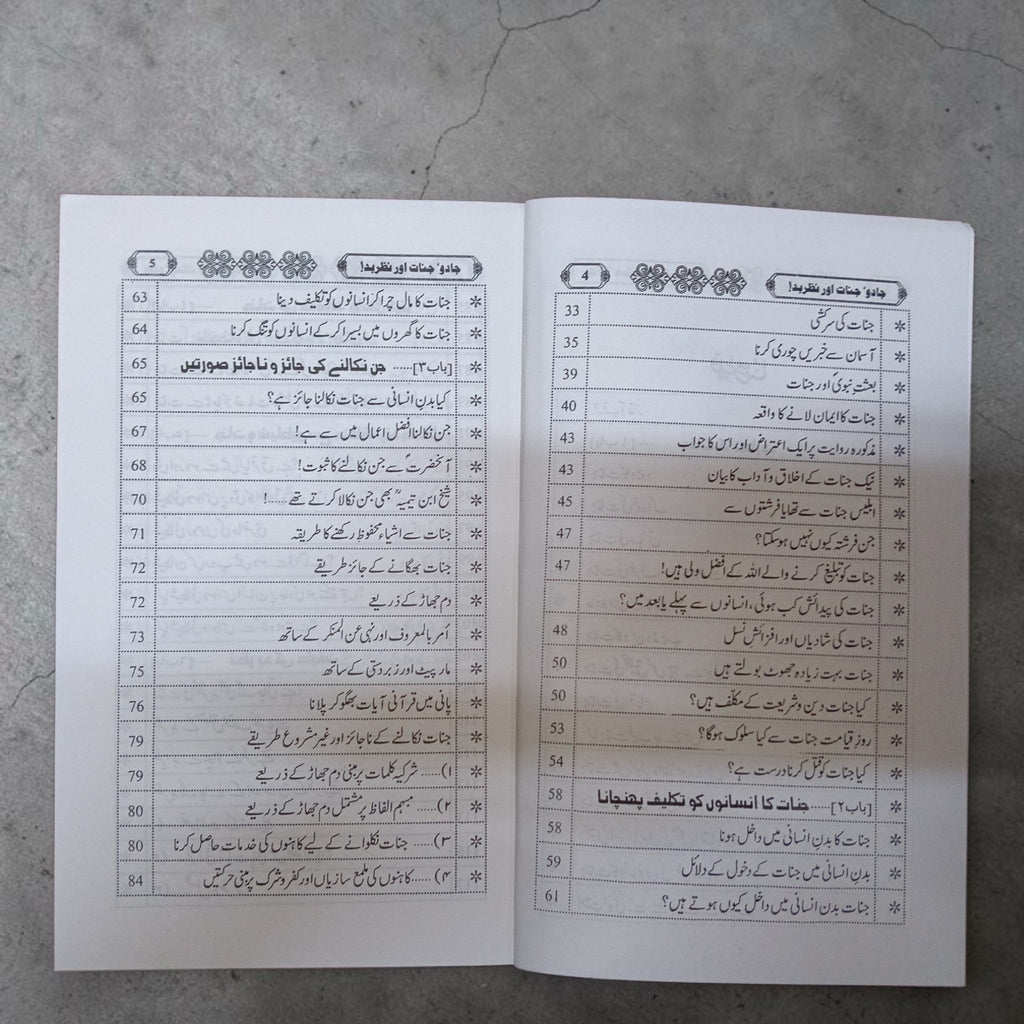 جادو' جنات اور نظر بد! 4
* جنات کی سرکشی 33
* آسمان سے خبریں چوری کرنا 35
* بعثت نبویؐ اور جنات 39
* جنات کا ایمان لانے کا واقعہ 40
* مذکورہ روایت پر ایک اعتراض اور اس کا جواب 43
* نیک جنات کے اخلاق و آداب کا بیان 43
* ابلیس جنات سے تھا یا فرشتوں سے 45
* جن فرشتہ کیوں نہیں ہو سکتا؟ 47
* جنات کو تبلیغ کرنے والے اللہ کے افضل ولی ہیں! 47
* جنات کی پیدائش کب ہوئی، انسانوں سے پہلے یا بعد میں؟
* جنات کی شادیاں اور افزائش نسل 48
* جنات بہت زیادہ جھوٹ بولتے ہیں 50
* کیا جنات دین و شریعت کے مکلّف ہیں؟ 50
* روزِ قیامت جنات سے کیا سلوک ہوگا؟ 53
* کیا جنات کو قتل کرنا درست ہے؟ 54
* [باب۲]..... جنات کا انسانوں کو تکلیف پہنچانا 58
* جنات کا بدنِ انسانی میں داخل ہونا 58
* بدنِ انسانی میں جنات کے دخول کے دلائل 59
* جنات بدن انسانی میں داخل کیوں ہوتے ہیں؟ 61
جادو' جنات اور نظر بد! 5
* جنات کا مال چرا کر انسانوں کو تکلیف دینا 63
* جنات کا گھروں میں بسیرا کر کے انسانوں کو تنگ کرنا 64
* [باب۳]..... جن نکالنے کی جائز و ناجائز صورتیں 65
* کیا بدنِ انسانی سے جنات نکالنا جائز ہے؟ 65
* جن نکالنا افضل اعمال میں سے ہے! 67
* آنحضرتؐ سے جن نکالنے کا ثبوت! 68
* شیخ ابن تیمیہؒ بھی جن نکالا کرتے تھے.....! 70
* جنات سے اشیاء محفوظ رکھنے کا طریقہ 71
* جنات بھگانے کے جائز طریقے 72
* دم جھاڑ کے ذریعے 72
* اَمر بالمعروف اور نہی عن المنکر کے ساتھ 73
* مار پیٹ اور زبردستی کے ساتھ 75
* پانی میں قرآنی آیات بھگو کر پلانا 76
* جنات نکالنے کے ناجائز اور غیر مشروع طریقے 79
* ۱)..... شرکیہ کلمات پر مبنی دم جھاڑ کے ذریعے 79
* ۲)..... مبہم الفاظ پر مشتمل دم جھاڑ کے ذریعے 80
* ۳)..... جنات نکلوانے کے لیے کاہنوں کی خدمات حاصل کرنا 80
* ۴)..... کاہنوں کی ملمع سازیاں اور کفر و شرک پر مبنی حرکتیں 84